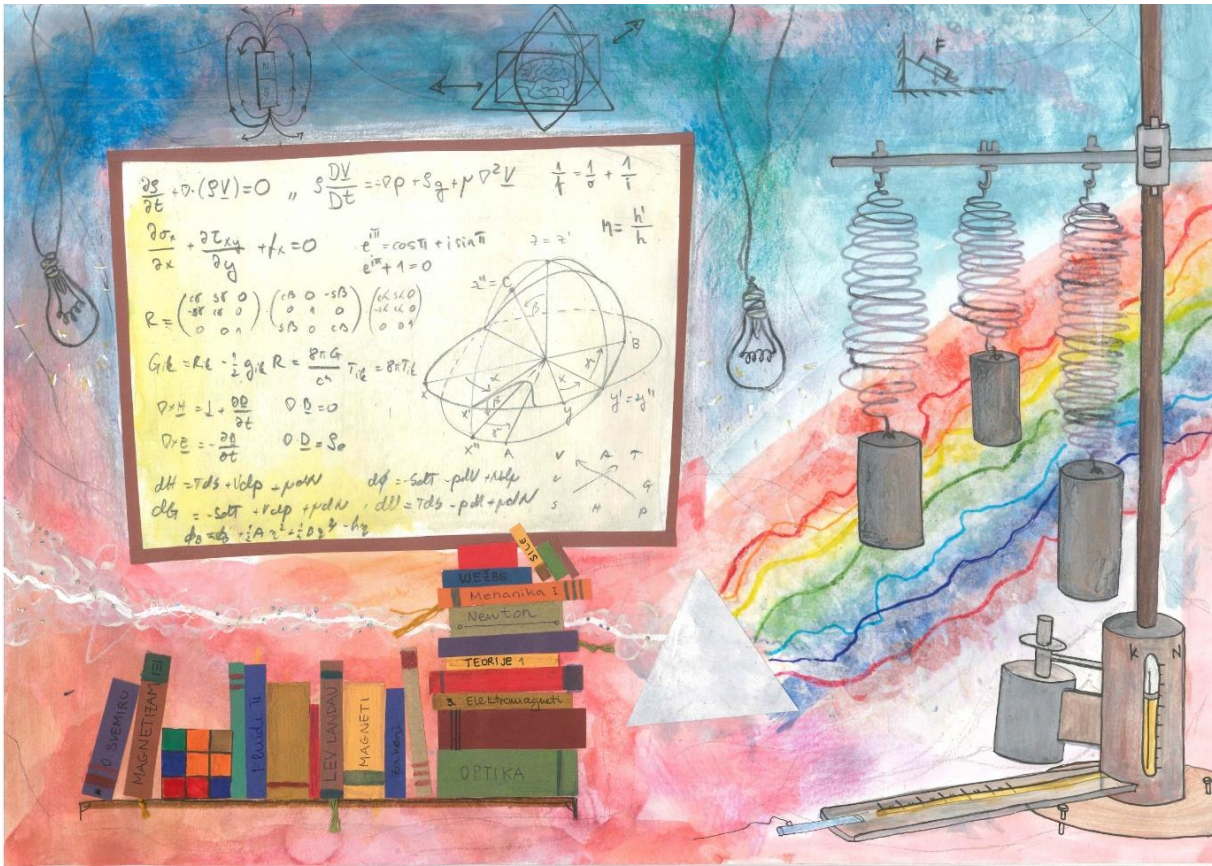 N
S
F
∂ρ/∂t + ∇·(ρV) = 0 ,, ρ DV/Dt = -∇p + ρg + μ∇²V
1/f = 1/o + 1/i
∂σx/∂x + ∂τxy/∂y + fx = 0
e^iπ = cosπ + i sinπ
e^iπ + 1 = 0
η = h'/h
R = (cγ sγ 0 / -sγ cγ 0 / 0 0 1) (cβ 0 -sβ / 0 1 0 / sβ 0 cβ) (cα sα 0 / -sα cα 0 / 0 0 1)
z = z'
z'' = C
β
B
α
γ
X
x'
x''
A
y
y' = y''
Gik = Rik - ½ gik R = 8πG/c⁴ Tik = 8πTik
∇×H = J + ∂D/∂t ∇B = 0
∇×E = -∂B/∂t ∇·D = ρo
dH = Tds + Vdp + μdN dϕ = -Sdt - pdV + Ndμ
dG = -SdT + Vdp + μdN , dU = Tds - pdV + μdN
V A T
U G
S H P
SILE
VJEŽBE
Mehanika I
Newton
TEORIJE 1
3. Elektromagneti
OPTIKA
O SVEMIRU
MAGNETIZAM III
Fluidi II
LEV LANDAU
MAGNETI
Zakoni
K N